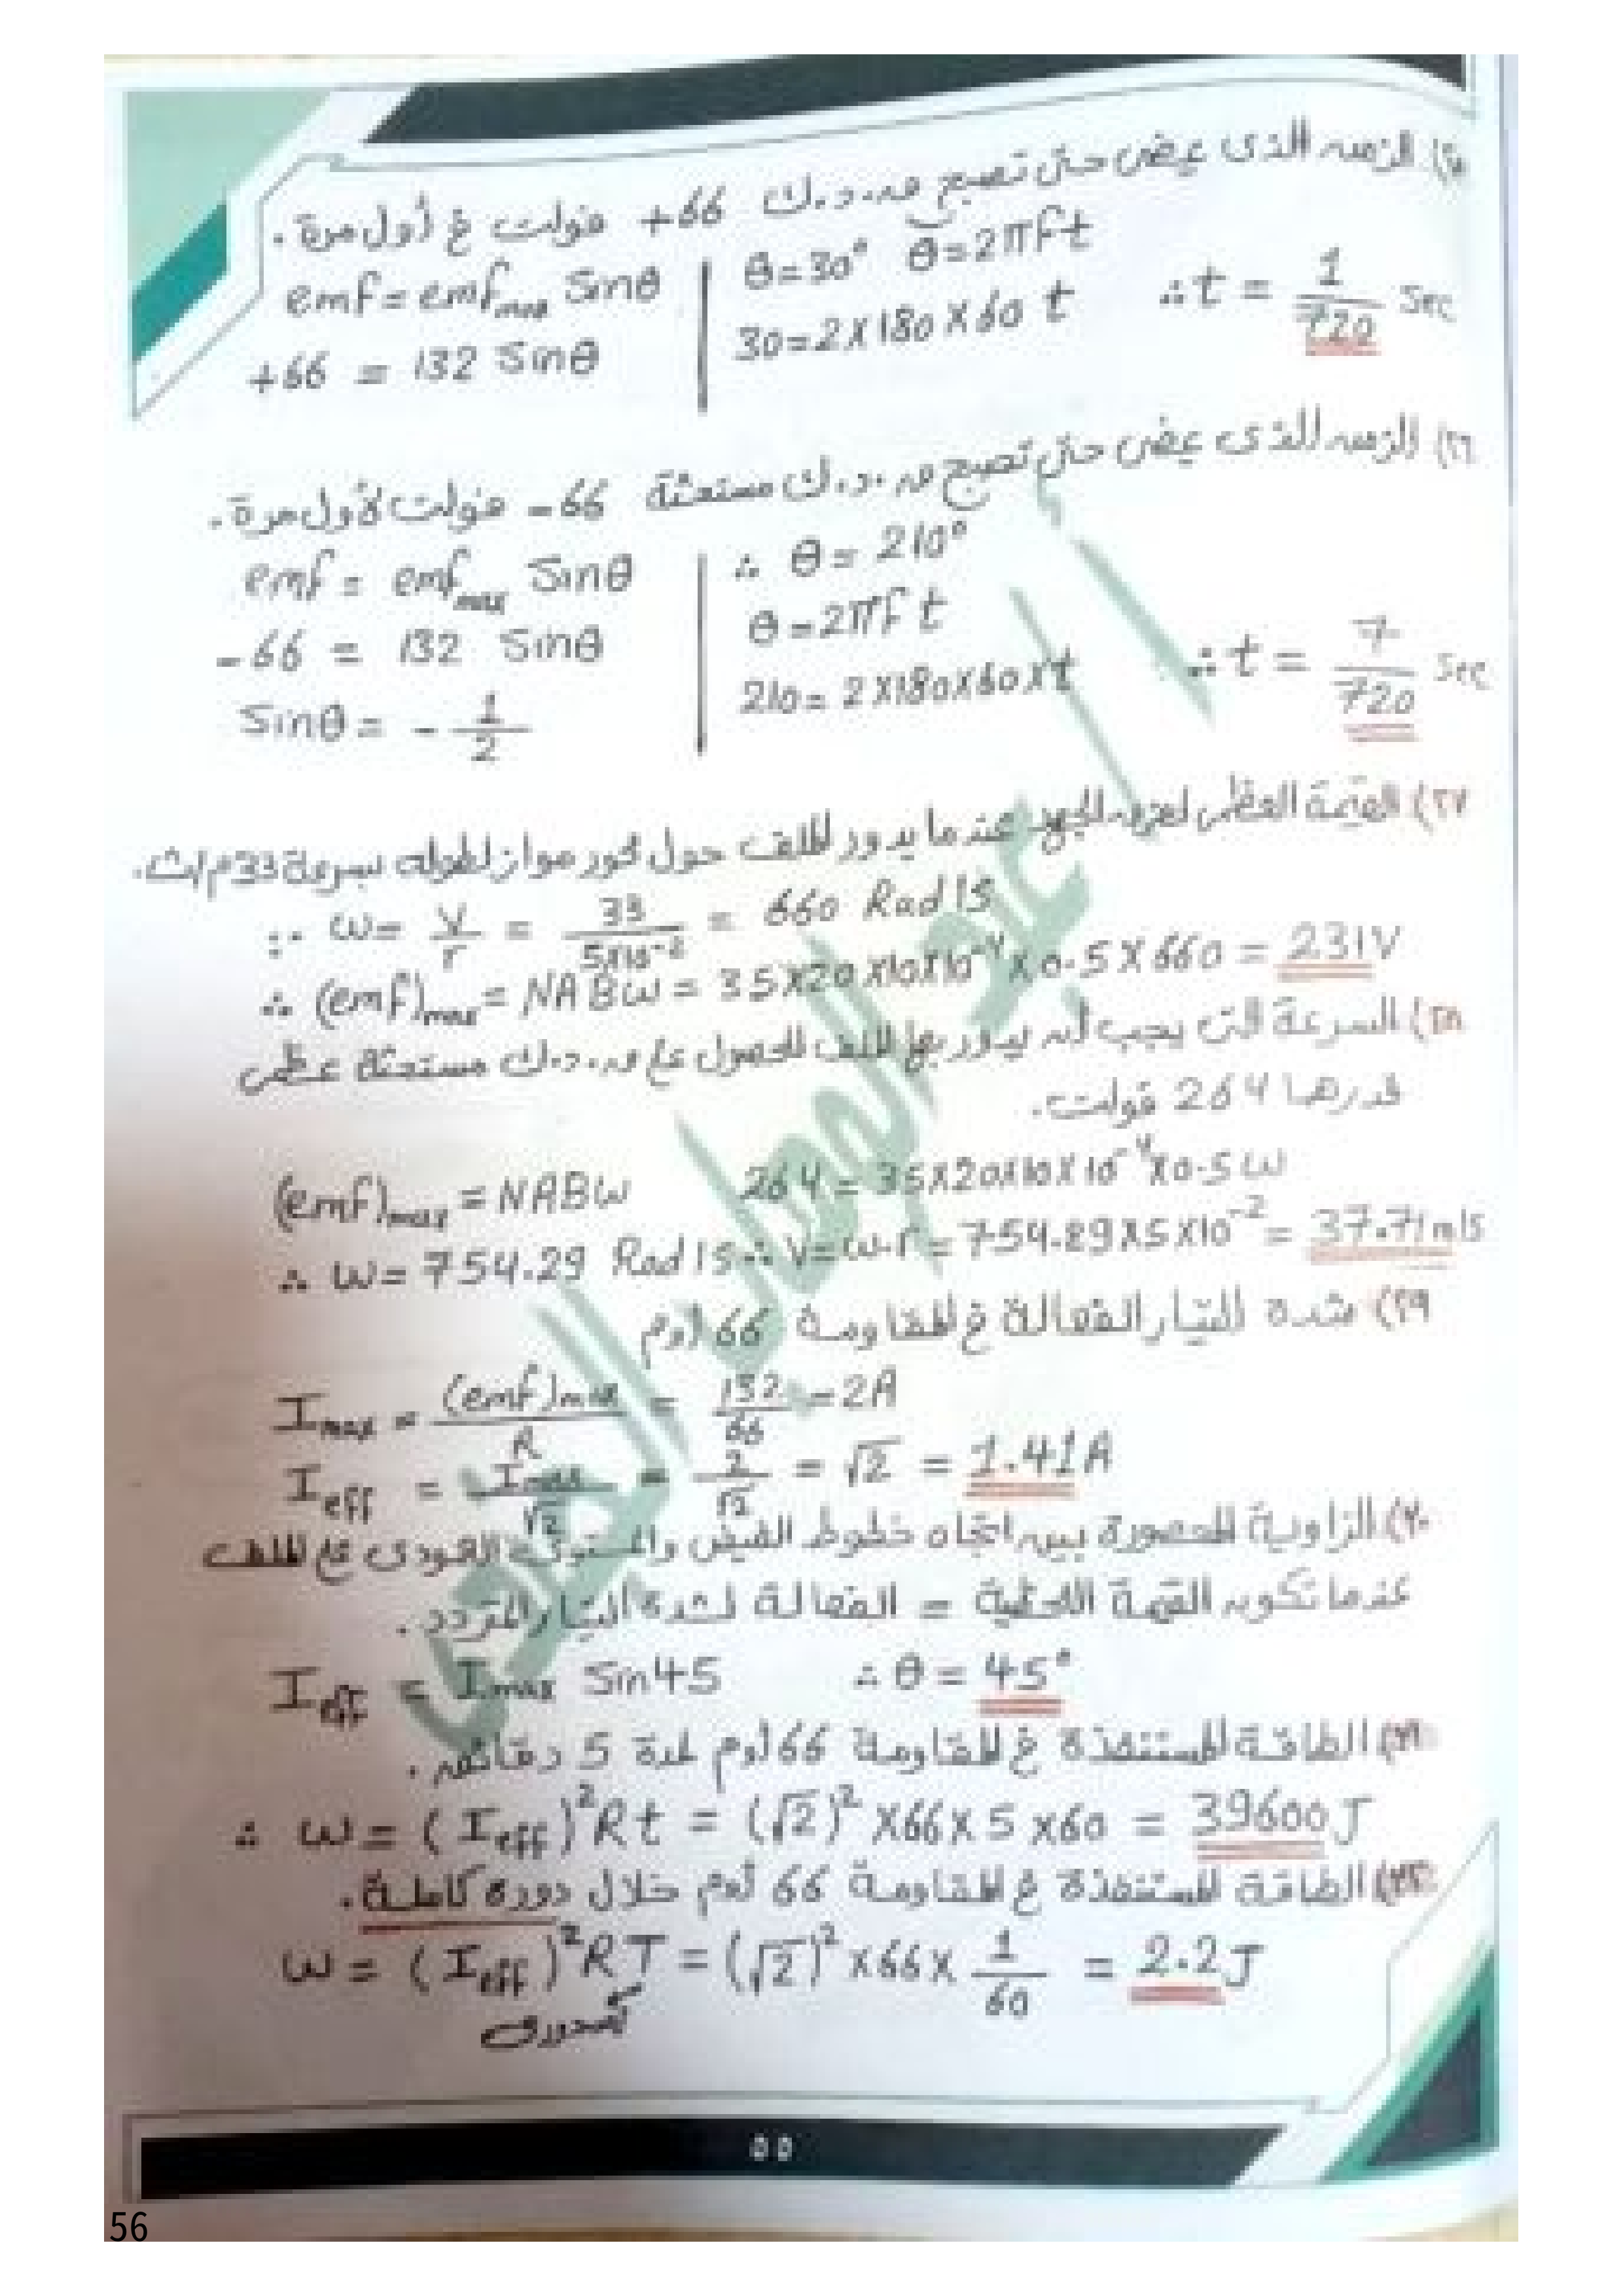 ٢٥) الزمن الذى يمضى حتى تصبح ق.د.ك 66+ فولت فى أول مرة.
emf = emf max Sinθ
θ = 30° θ = 2πft
∴ t = 1/720 sec
+66 = 132 Sinθ
30 = 2 X 180 X 60 t
٢٦) الزمن الذى يمضى حتى تصبح ق.د.ك مستحثة 66- فولت لأول مرة.
emf = emf max Sinθ
∴ θ = 210°
-66 = 132 Sinθ
θ = 2πf t
Sinθ = - 1/2
210 = 2 X 180 X 60 X t
∴ t = 7/720 sec
٢٧) القيمة العظمى عندما يدور الملف حول محور مواز لطوله بسرعة 33 م/ث.
∵ ω = V/r = 33/5X10⁻² = 660 Rad/S
∴ (emf)max = NABω = 35X20X10X10⁻⁴ X 0.5 X 660 = 231V
٢٨) السرعة التى يجب أن يدور بها الملف للحصول على ق.د.ك مستحثة عظمى
قدرها 264 فولت.
(emf)max = NABω 264 = 35X20X10X10⁻⁴X0.5 ω
∴ ω = 754.29 Rad/S ∴ V = ω.r = 754.29X5X10⁻² = 37.71 m/s
٢٩) شدة التيار الفعالة فى المقاومة 66 أوم
I max = (emf)max/R = 132/66 = 2A
I eff = I max/√2 = 2/√2 = √2 = 1.41A
٣٠) الزاوية المحصورة بين اتجاه خطوط الفيض والمستوى العمودى على الملف
عندما تكون القيمة اللحظية = الفعالة لشدة التيار المتردد.
I eff = I max Sin45 ∴ θ = 45°
٣١) الطاقة المستنفذة فى المقاومة 66 أوم لمدة 5 دقائق.
∴ W = (I eff)² Rt = (√2)² X66X 5 X60 = 39600J
٣٢) الطاقة المستنفذة فى المقاومة 66 أوم خلال دورة كاملة.
W = (I eff)² RT = (√2)² X66X 1/60 = 2.2J
٥٥
56